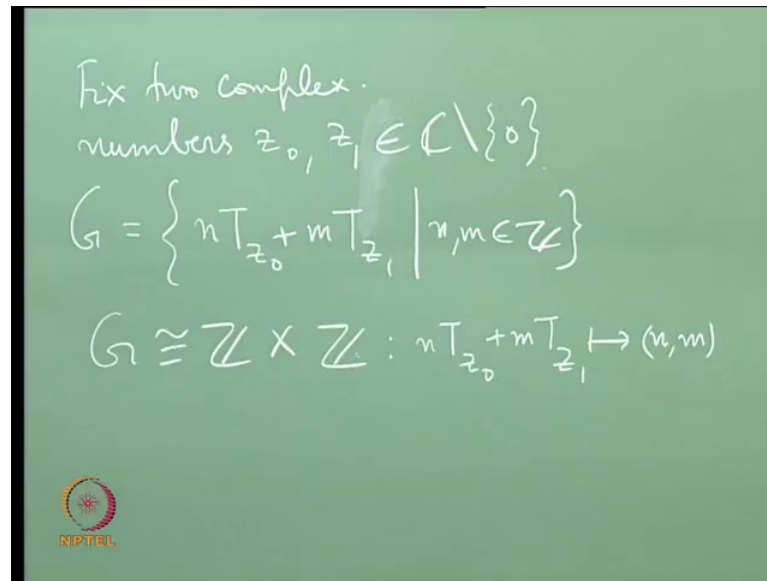 Fix two complex.
numbers z₀, z₁ ∈ ℂ\{0}
G = { nT_{z₀} + mT_{z₁} | n, m ∈ ℤ }
G ≅ ℤ × ℤ : nT_{z₀} + mT_{z₁} ↦ (n, m)
NPTEL